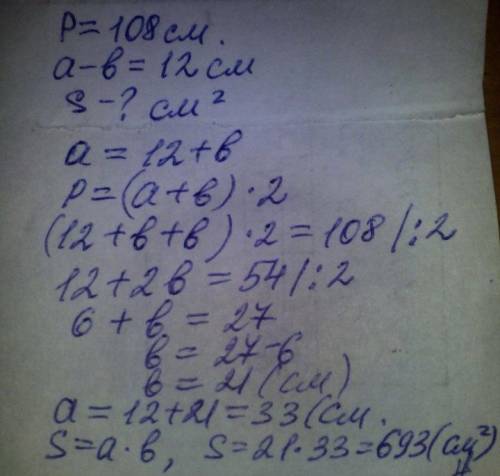 P = 108 см.
a - b = 12 см
S - ? см²
a = 12 + b
P = (a + b) · 2
(12 + b + b) · 2 = 108 /:2
12 + 2b = 54 /:2
6 + b = 27
b = 27 - 6
b = 21 (см)
a = 12 + 21 = 33 (см.
S = a · b, S = 21 · 33 = 693 (см²)